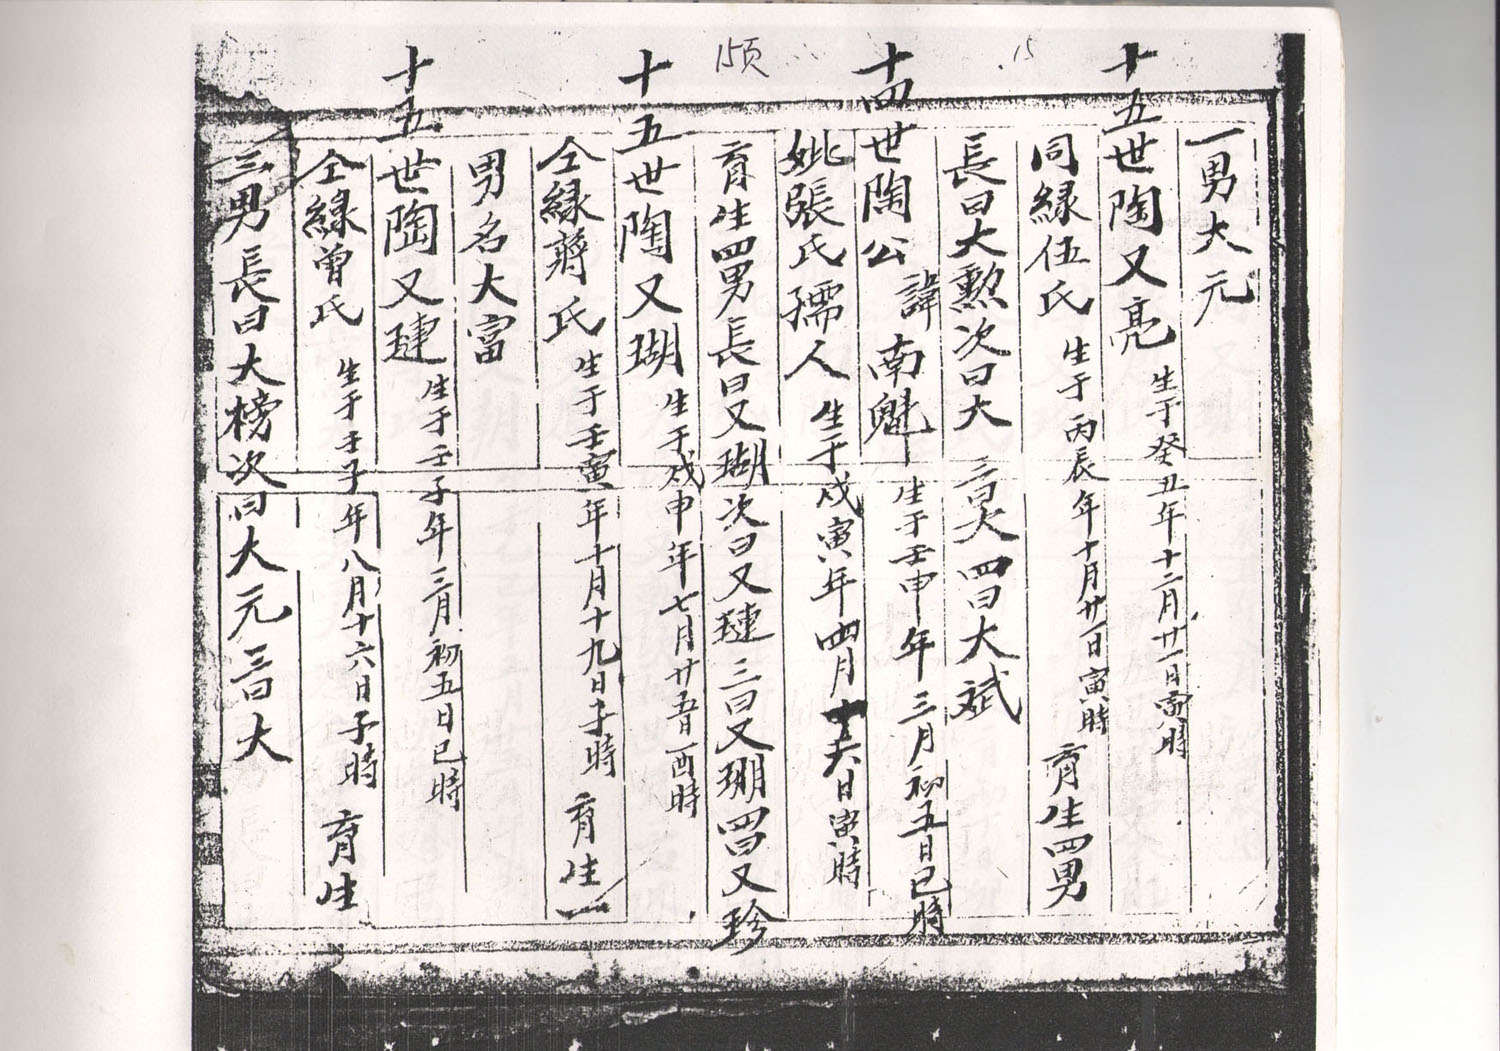 15页
15
一男大元
十五世陶又亮 生于癸丑年十二月廿一日寅時
同緑伍氏 生于丙辰年十月廿一日寅時 育生四男
長曰大勲次曰大 三曰大 四曰大斌
十四世陶公諱南魁 生于壬申年三月初五日巳時
妣張氏孺人 生于戊寅年四月十六日寅時
育生四男長曰又瑚次曰又璉三曰又珊四曰又珍
十五世陶又瑚 生于戊申年七月廿五日酉時
仝緑蔣氏 生于壬寅年十月十九日子時 育生一
男名大富
十五世陶又璉 生于壬子年三月初五日巳時
仝緑曾氏 生于壬子年八月十六日子時 育生
三男長曰大榜次曰大元三曰大